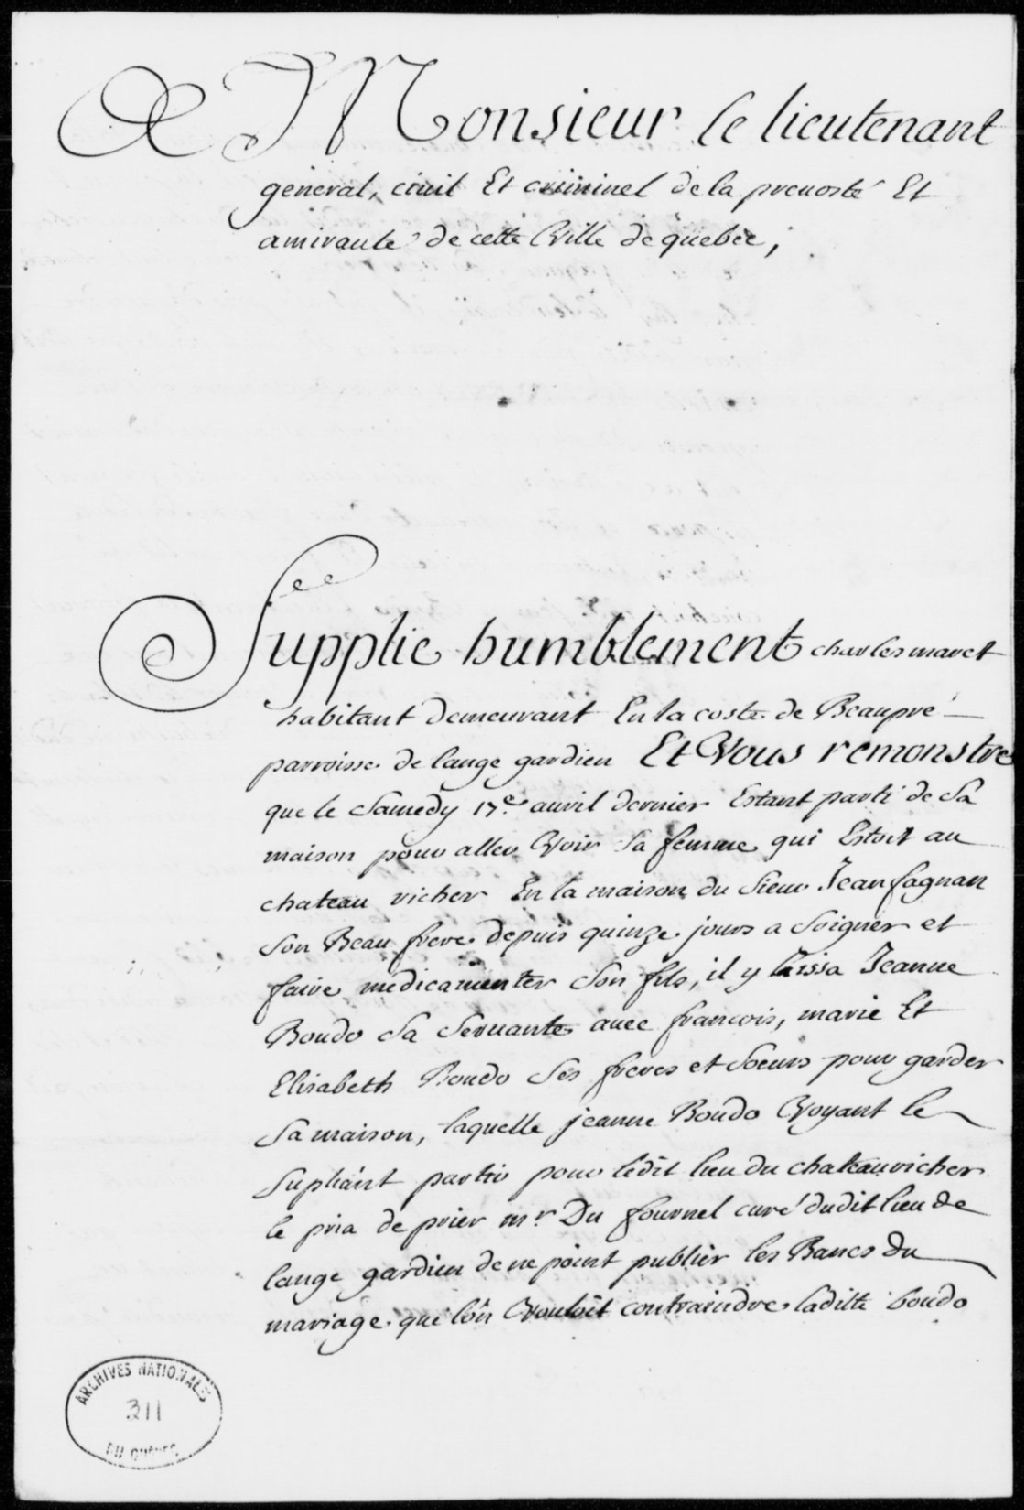 A Monsieur le lieutenant
general, ciuil Et criminel de la preuosté Et
amirauté de cette Ville de quebec,
Supplie humblement charles maret
habitant demeurant En la coste de Beaupré
parroisse de lange gardien Et Vous remonstre
que le Samedy 17e auril dernier Estant parti de Sa
maison pour aller Voir Sa femme qui Estoit au
chateau richer En la maison du Sieur Jean Gagnan
Son Beau frere depuis quinze jours a Soigner et
faire medicamenter Son fils, il y laissa Jeanne
Boudo Sa Seruante auec francois, marie Et
Elisabeth Boudo Ses freres et Soeurs pour garder
Sa maison, laquelle jeanne Boudo Voyant le
Supliant partir pour ledit lieu du chateau richer
le pria de prier mr Du fournel curé dudit lieu de
lange gardien de ne point publier les Bancs du
mariage que lon Vouloit contraindre laditte boudo
ARCHIVES NATIONALES
311
DU QUÉBEC